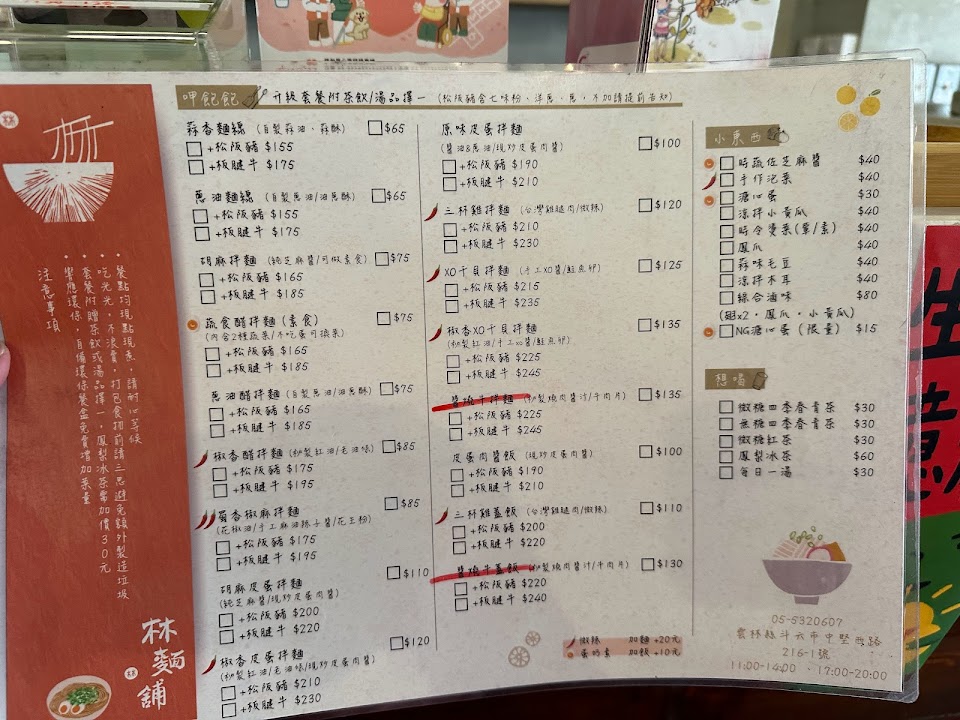 林
注意事項
• 餐點均現點現煮，請耐心等候
• 吃光光，不浪費，打包食物前請三思避免額外製造垃圾
• 套餐附贈茶飲或湯品擇一，鳳梨冰茶需加價30元
• 響應環保，自備環保餐盒免費增加菜量
林麵舖
林
呷飽飽 升級套餐附茶飲/湯品擇一 (松阪豬含七味粉、洋蔥、蔥，不加請提前告知)
蒜香麵線 (自製蒜油、蒜酥) $65
+松阪豬 $155
+板腱牛 $175
蔥油麵線 (自製蔥油/油蔥酥) $65
+松阪豬 $155
+板腱牛 $175
胡麻拌麵 (純芝麻醬/可做素食) $75
+松阪豬 $165
+板腱牛 $185
蔬食醋拌麵 (素食) $75
(內含2種蔬菜/不吃蛋可換菜)
+松阪豬 $165
+板腱牛 $185
蔥油醋拌麵 (自製蔥油/油蔥酥) $75
+松阪豬 $165
+板腱牛 $185
椒香醋拌麵 (秘製紅油/老油味) $85
+松阪豬 $175
+板腱牛 $195
蜀香椒麻拌麵 $85
(花椒油/手工麻油辣豆醬/花生粉)
+松阪豬 $175
+板腱牛 $195
胡麻皮蛋拌麵 $110
(純芝麻醬/現炒皮蛋肉醬)
+松阪豬 $200
+板腱牛 $220
椒香皮蛋拌麵 $120
(秘製紅油/老油味/現炒皮蛋肉醬)
+松阪豬 $210
+板腱牛 $230
原味皮蛋拌麵 $100
(醬油&蔥油/現炒皮蛋肉醬)
+松阪豬 $190
+板腱牛 $210
三杯雞拌麵 (台灣雞腿肉/微辣) $120
+松阪豬 $210
+板腱牛 $230
XO干貝拌麵 (手工XO醬/鮭魚卵) $125
+松阪豬 $215
+板腱牛 $235
椒香XO干貝拌麵 $135
(秘製紅油/手工XO醬/鮭魚卵)
+松阪豬 $225
+板腱牛 $245
醬燒牛拌麵 (秘製燒肉醬汁/牛肉片) $135
+松阪豬 $225
+板腱牛 $245
皮蛋肉醬飯 (現炒皮蛋肉醬) $100
+松阪豬 $190
+板腱牛 $210
三杯雞蓋飯 (台灣雞腿肉/微辣) $110
+松阪豬 $200
+板腱牛 $220
醬燒牛蓋飯 (秘製燒肉醬汁/牛肉片) $130
+松阪豬 $220
+板腱牛 $240
微辣 加麵+20元
蛋奶素 加飯+10元
小東西
時蔬佐芝麻醬 $40
手作泡菜 $40
溏心蛋 $30
涼拌小黃瓜 $40
時令燙菜(葷/素) $40
鳳爪 $40
蒜味毛豆 $40
涼拌木耳 $40
綜合滷味 $80
(翅x2、鳳爪、小黃瓜)
NG溏心蛋 (限量) $15
想喝
微糖四季春青茶 $30
無糖四季春青茶 $30
微糖紅茶 $30
鳳梨冰茶 $60
每日一湯 $30
05-5320607
雲林縣斗六市中堅西路
216-1號
11:00-14:00、17:00-20:00
生意